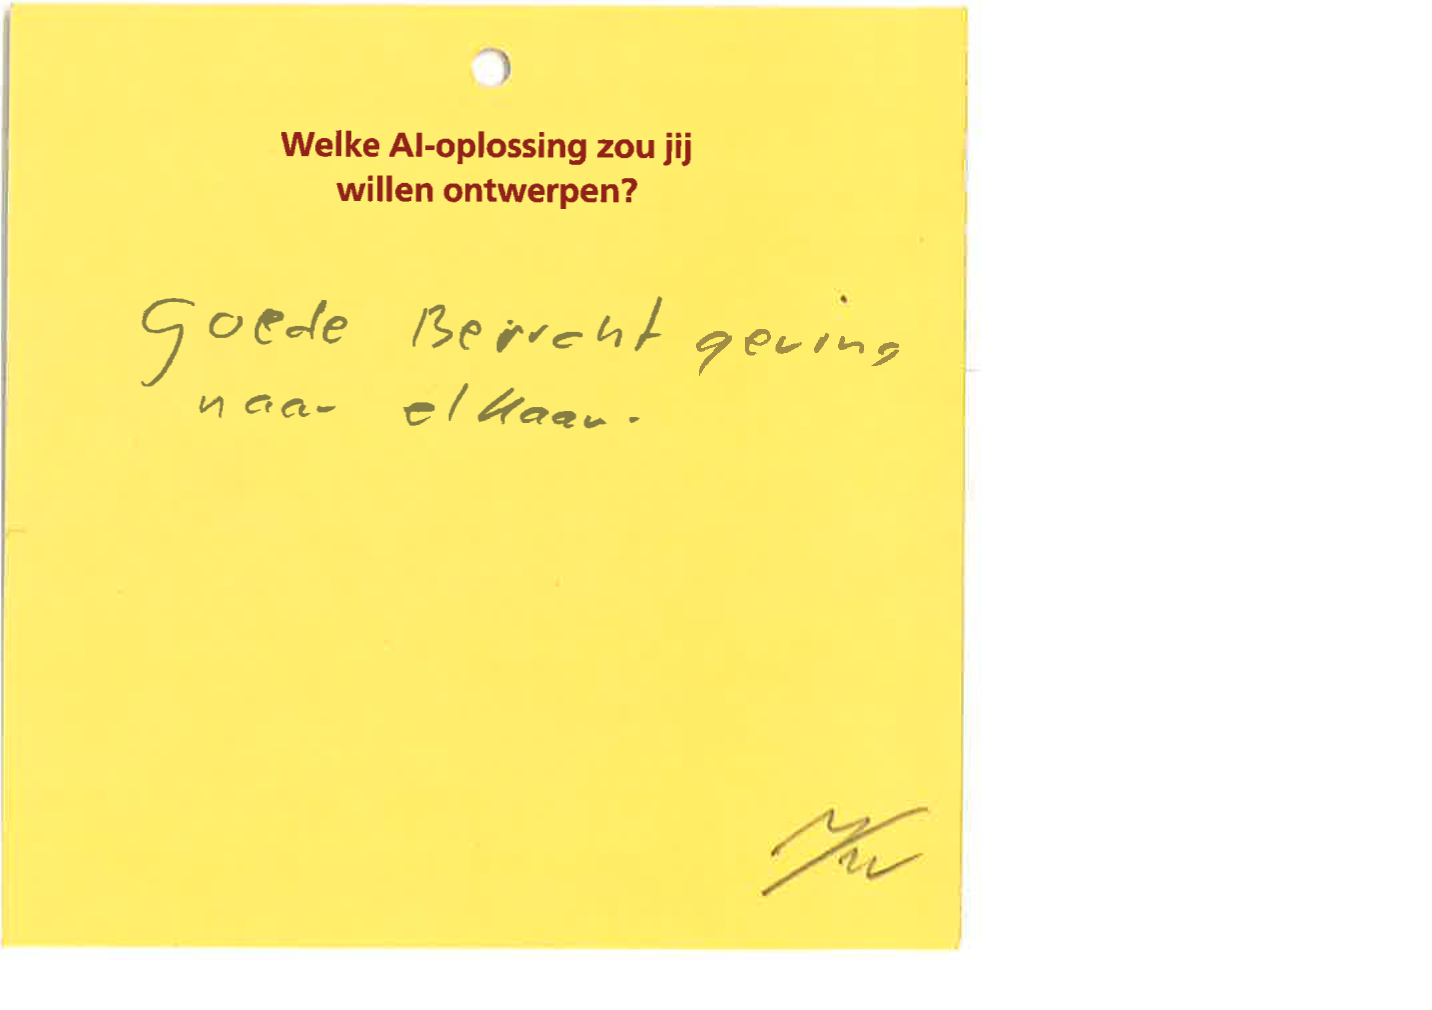 Welke AI-oplossing zou jij
willen ontwerpen?
Goede Bericht geving
naar elkaar.